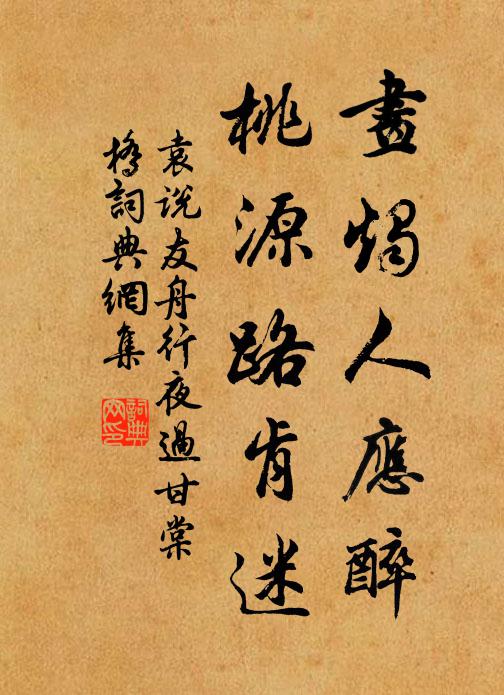 畫燭人應醉
桃源路肯迷
袁說友舟行夜過甘棠
橋詞典網集
詞典
网印